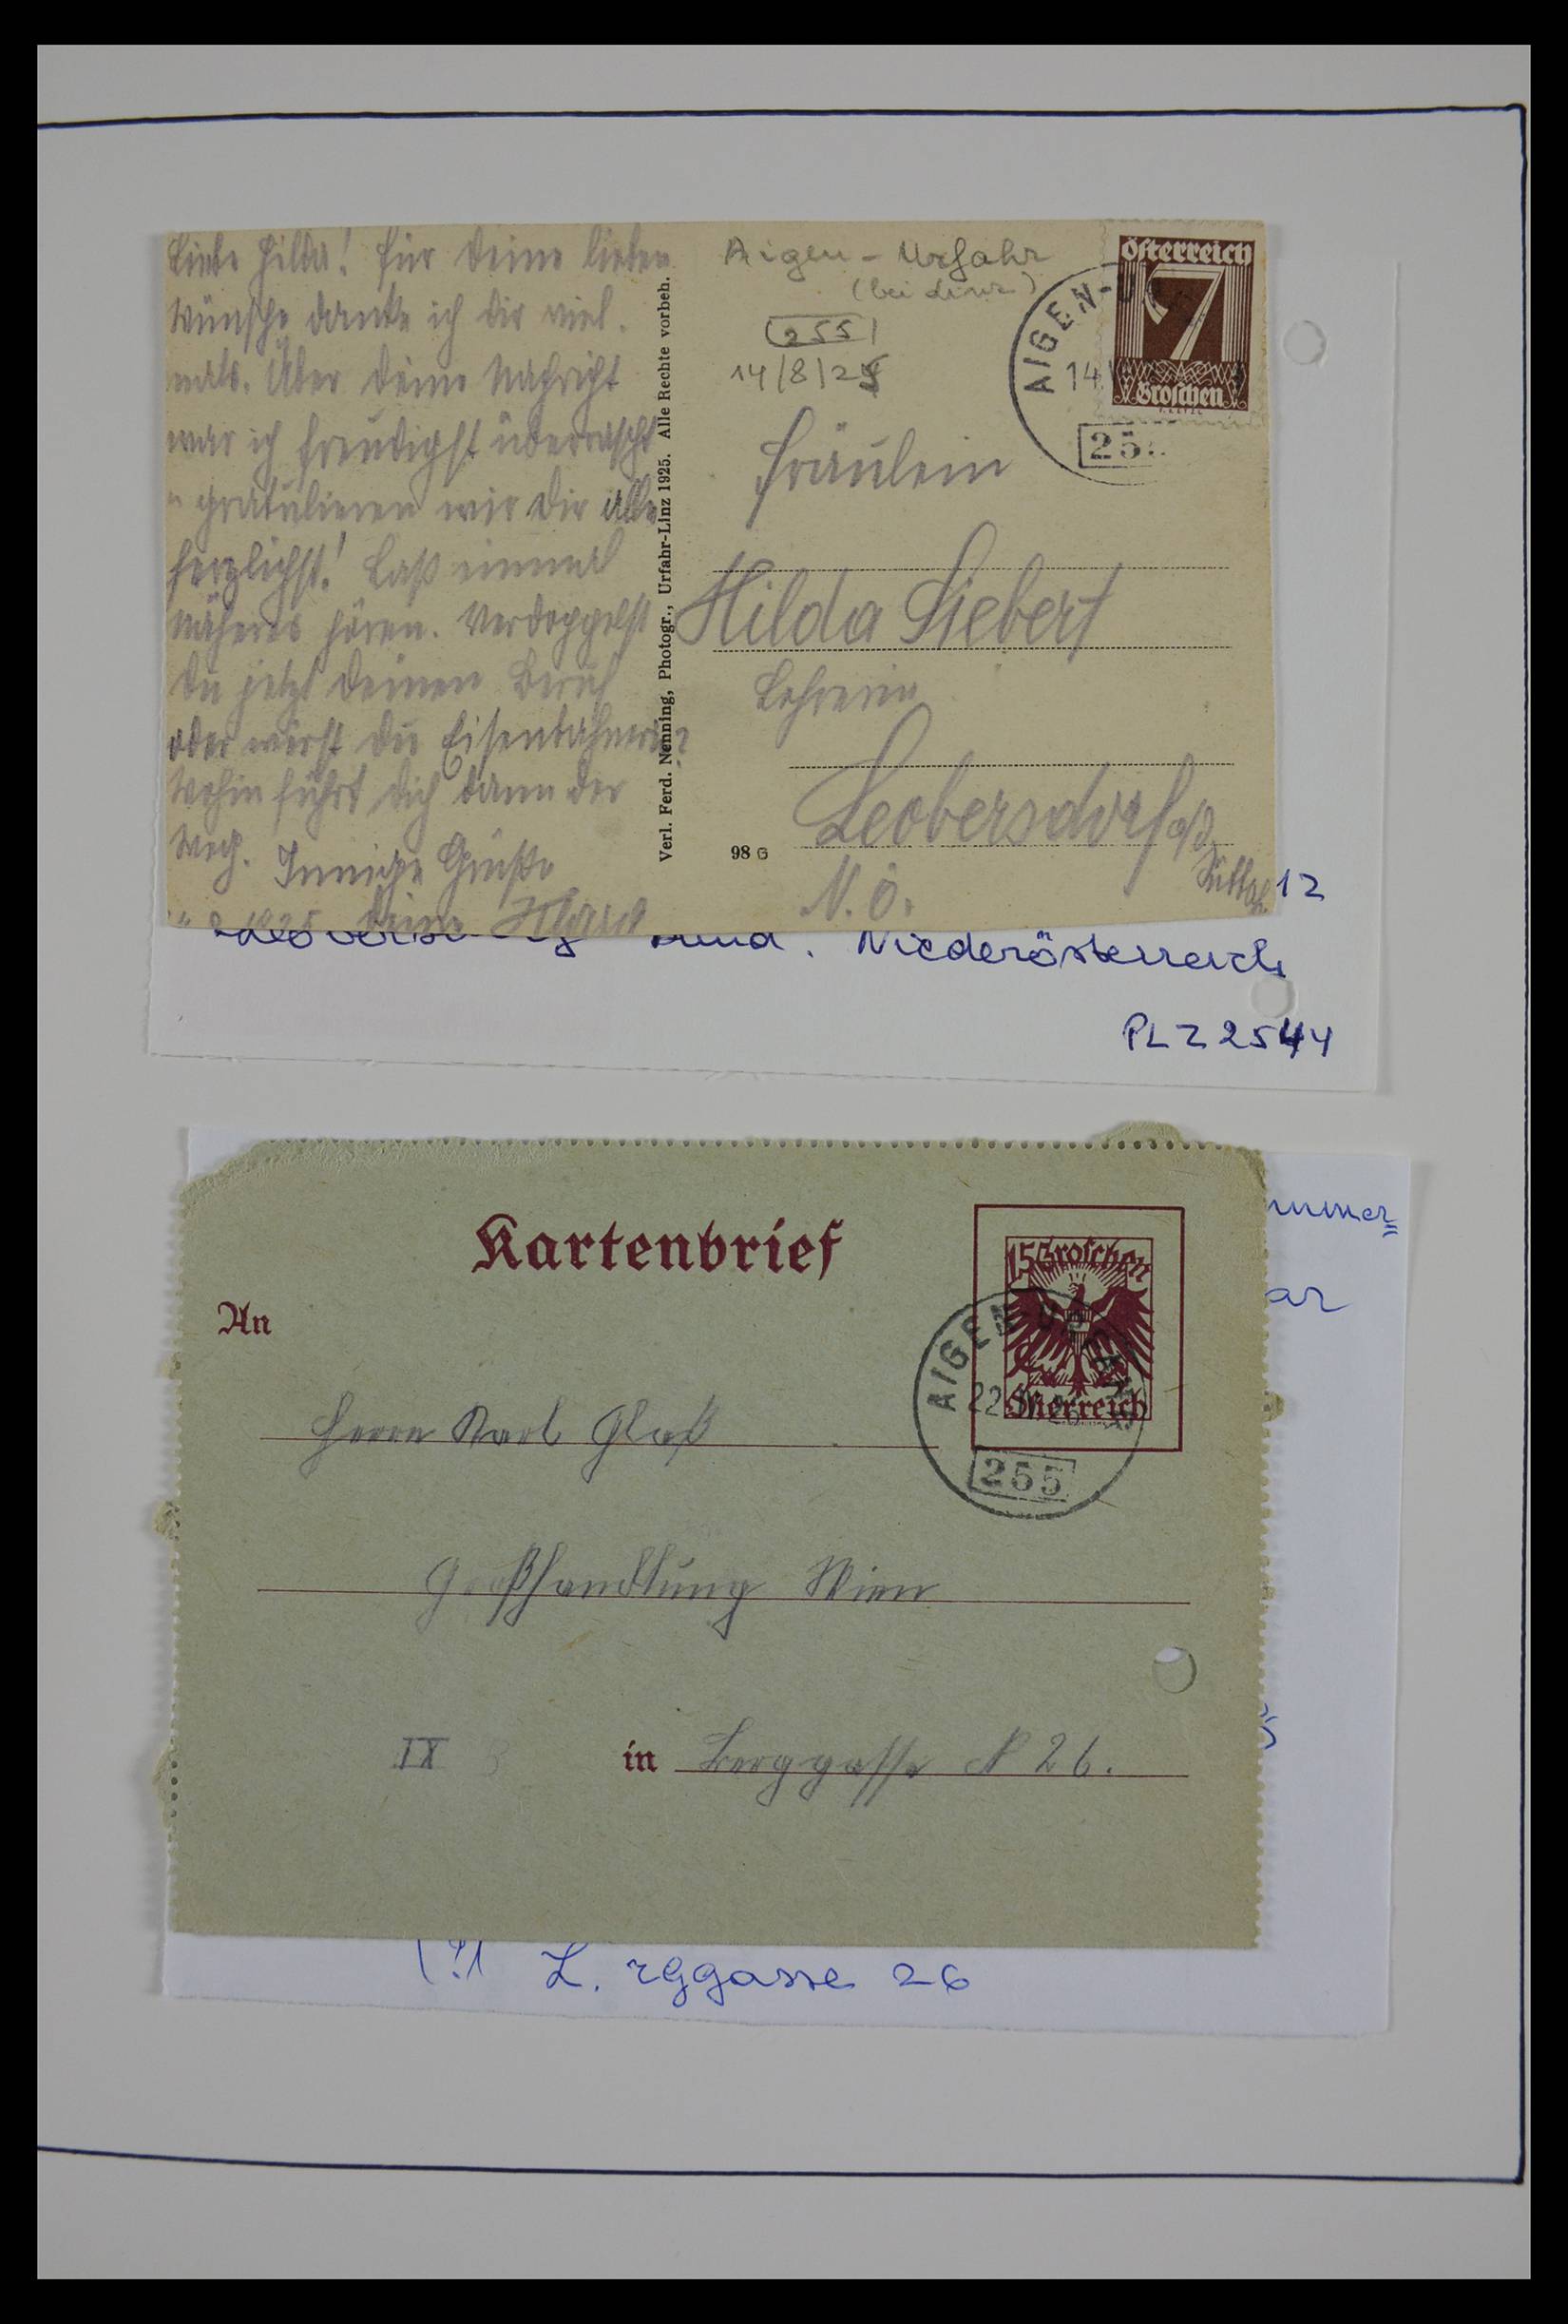 Liebe Hilda! Für deine lieben
Wünsche danke ich dir viel-
mals. Über deine Nachricht
war ich freudigst überrascht
u gratulieren wir dir alle
herzlichst! Laß einmal
näheres hören. Verdoppelst
du jetzt deinen Beruf
oder wirst du Eisenbahnerin?
Wohin führt dich dann der
Weg. Innige Grüße
1925 Deine
Verl. Ferd. Nenning, Photogr., Urfahr-Linz 1925. Alle Rechte vorbeh.
Aigen - Urfahr
(bei Linz)
255
14/8/25
Österreich
7
Groschen
AIGEN-U
14
25
Fräulein
Hilda Siebert
Lehrerin
Leobersdorf a/d
N. Ö.
98 G
12
Niederösterreich
PLZ 2544
Kartenbrief
An
15 Groschen
Österreich
AIGEN-U
22
255
Herrn Karl Glaß
Großhandlung Wien
IX
in Berggasse N 26.
ar
rggasse 26